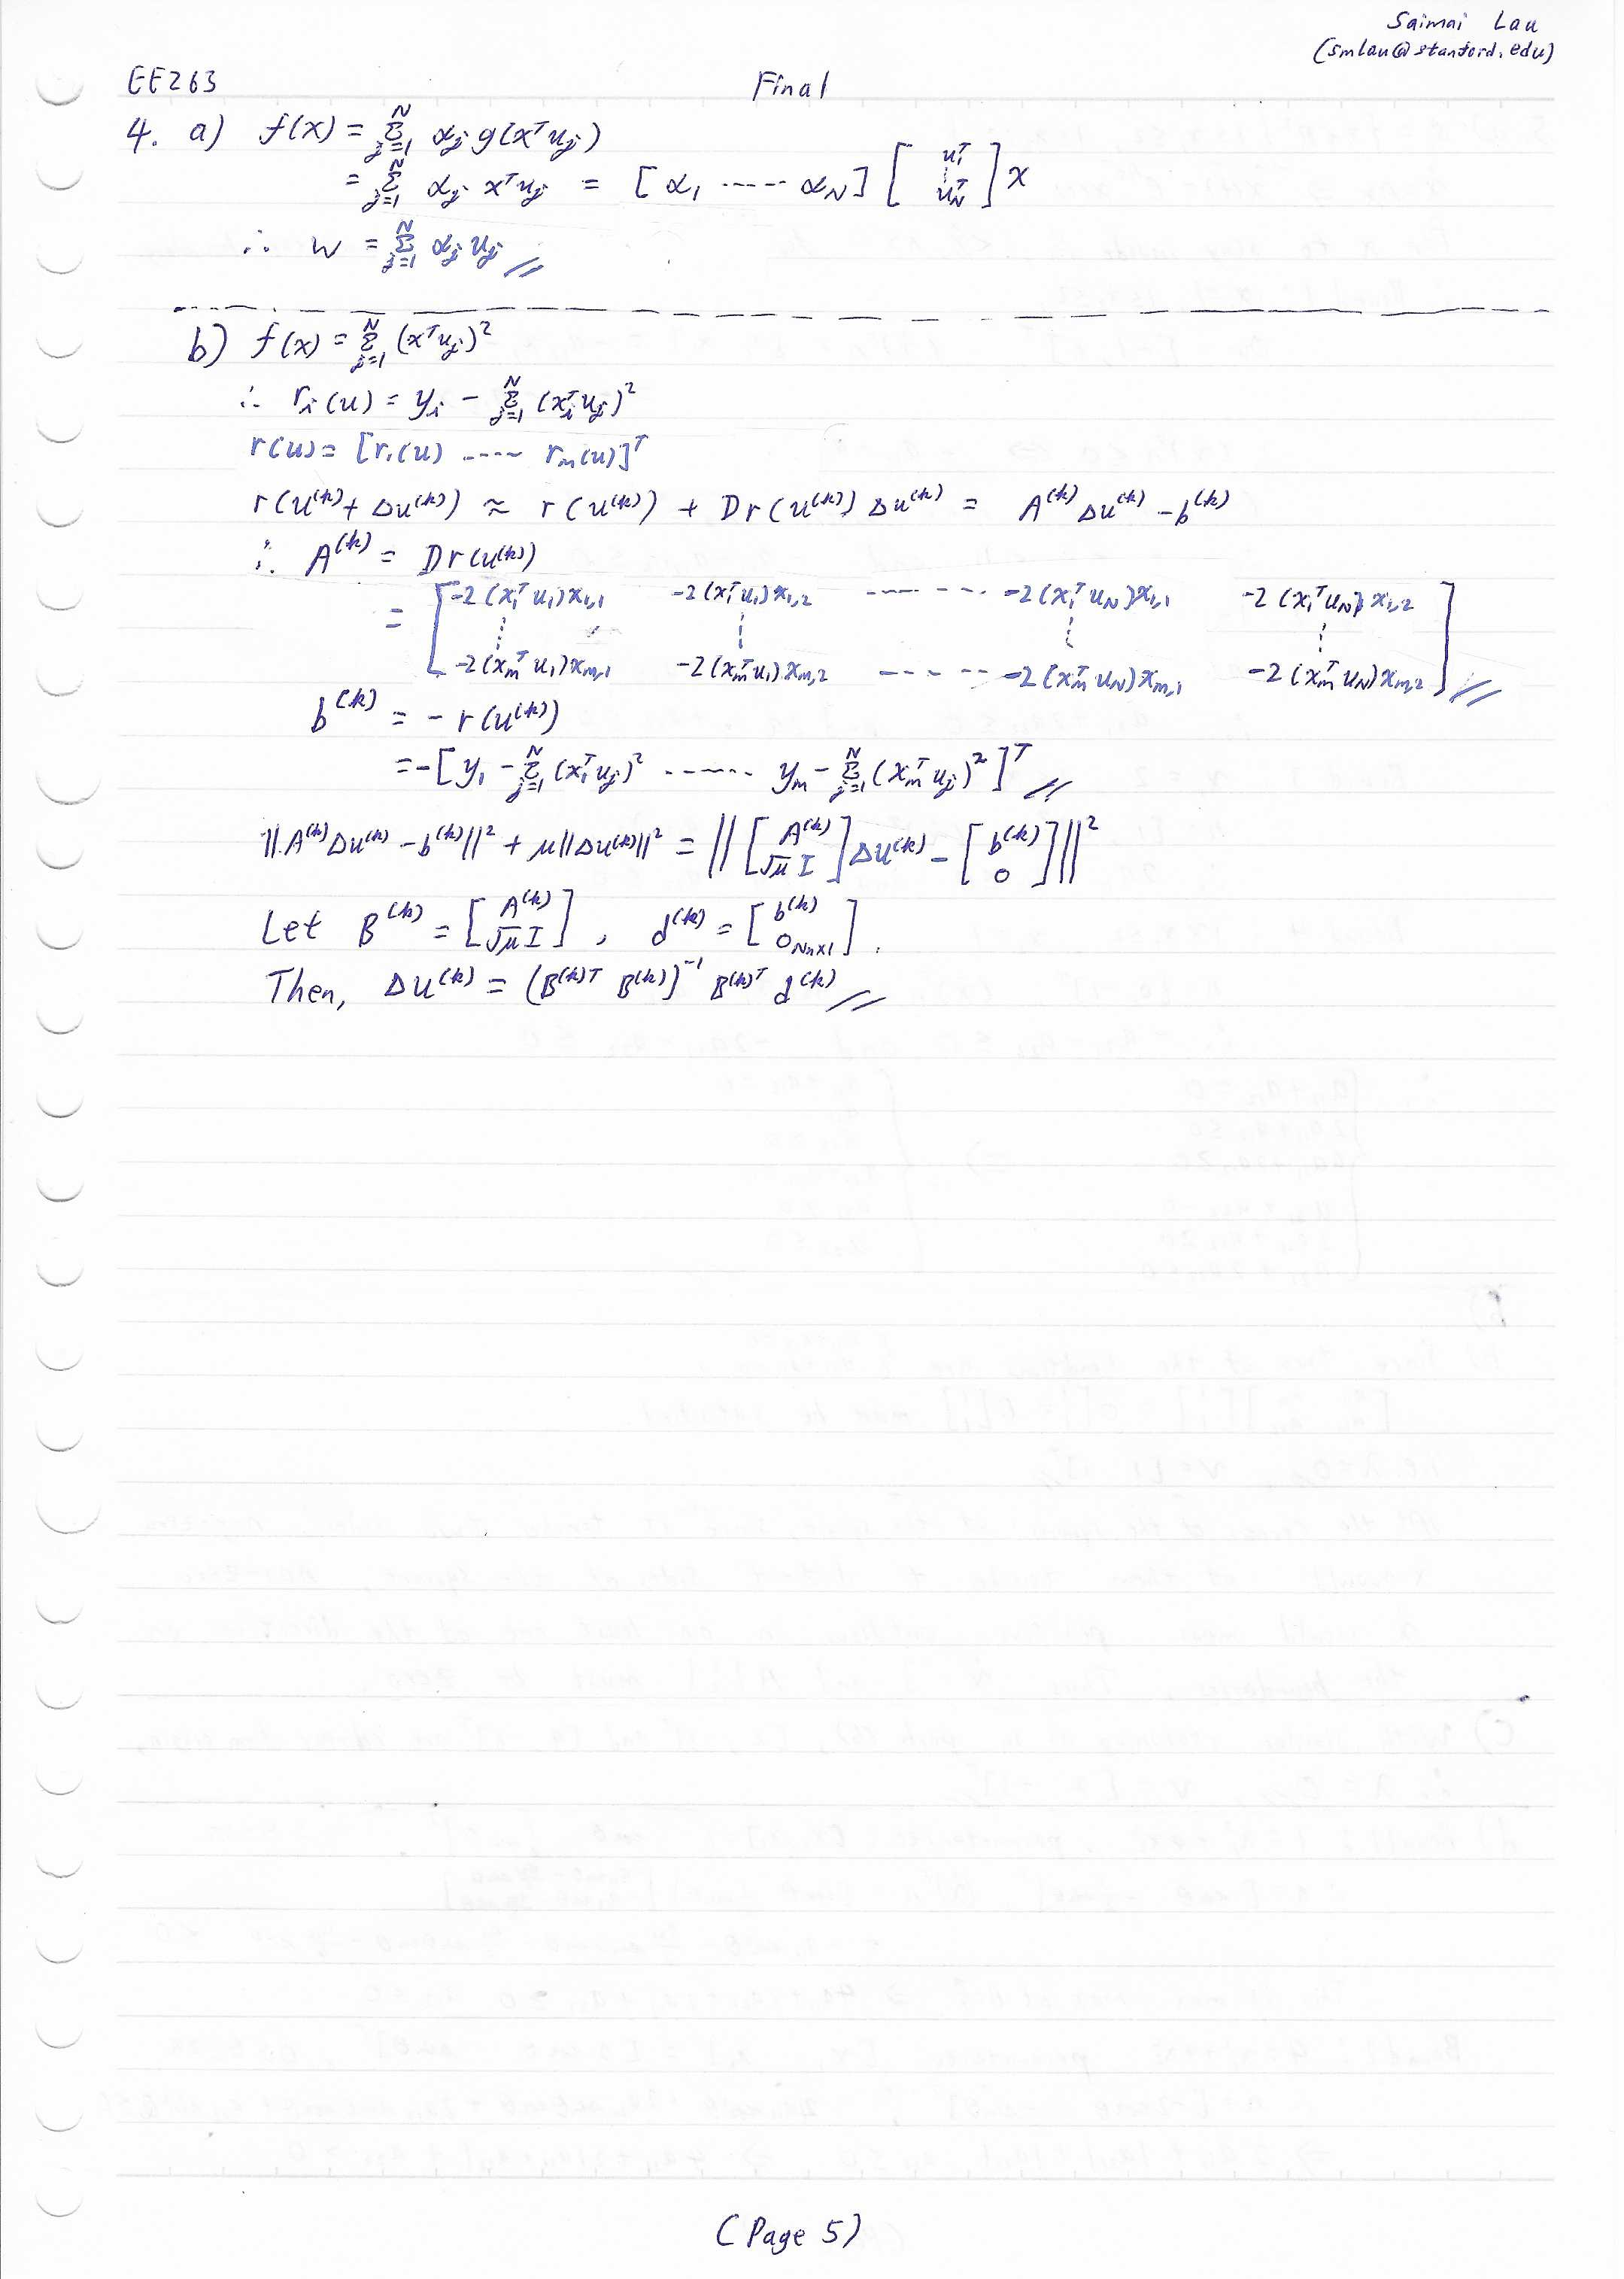 Saimai Lau
(smlau@stanford.edu)
EE263 Final
4. a) f(x) = Σ_{j=1}^{N} α_j g(x^T u_j)
= Σ_{j=1}^{N} α_j x^T u_j = [α_1 ----- α_N] [u_1^T ⋮ u_N^T] x
∴ w = Σ_{j=1}^{N} α_j u_j //
b) f(x) = Σ_{j=1}^{N} (x^T u_j)^2
∴ r_i(u) = y_i - Σ_{j=1}^{N} (x_i^T u_j)^2
r(u) = [r_1(u) ---- r_m(u)]^T
r(u^(k) + Δu^(k)) ≈ r(u^(k)) + Dr(u^(k)) Δu^(k) = A^(k) Δu^(k) - b^(k)
∴ A^(k) = Dr(u^(k))
= [ -2(x_1^T u_1)x_{1,1} -2(x_1^T u_1)x_{1,2} ------- -2(x_1^T u_N)x_{1,1} -2(x_1^T u_N)x_{1,2}
⋮ ⋮ ⋮ ⋮
-2(x_m^T u_1)x_{m,1} -2(x_m^T u_1)x_{m,2} ------- -2(x_m^T u_N)x_{m,1} -2(x_m^T u_N)x_{m,2} ] //
b^(k) = -r(u^(k))
= -[y_1 - Σ_{j=1}^{N} (x_1^T u_j)^2 ------ y_m - Σ_{j=1}^{N} (x_m^T u_j)^2]^T //
||A^(k) Δu^(k) - b^(k)||^2 + μ||Δu^(k)||^2 = || [A^(k) ; √μ I] Δu^(k) - [b^(k) ; 0] ||^2
Let B^(k) = [A^(k) ; √μ I], d^(k) = [b^(k) ; 0_{Nn×1}].
Then, Δu^(k) = (B^(k)T B^(k))^-1 B^(k)T d^(k) //
(Page 5)